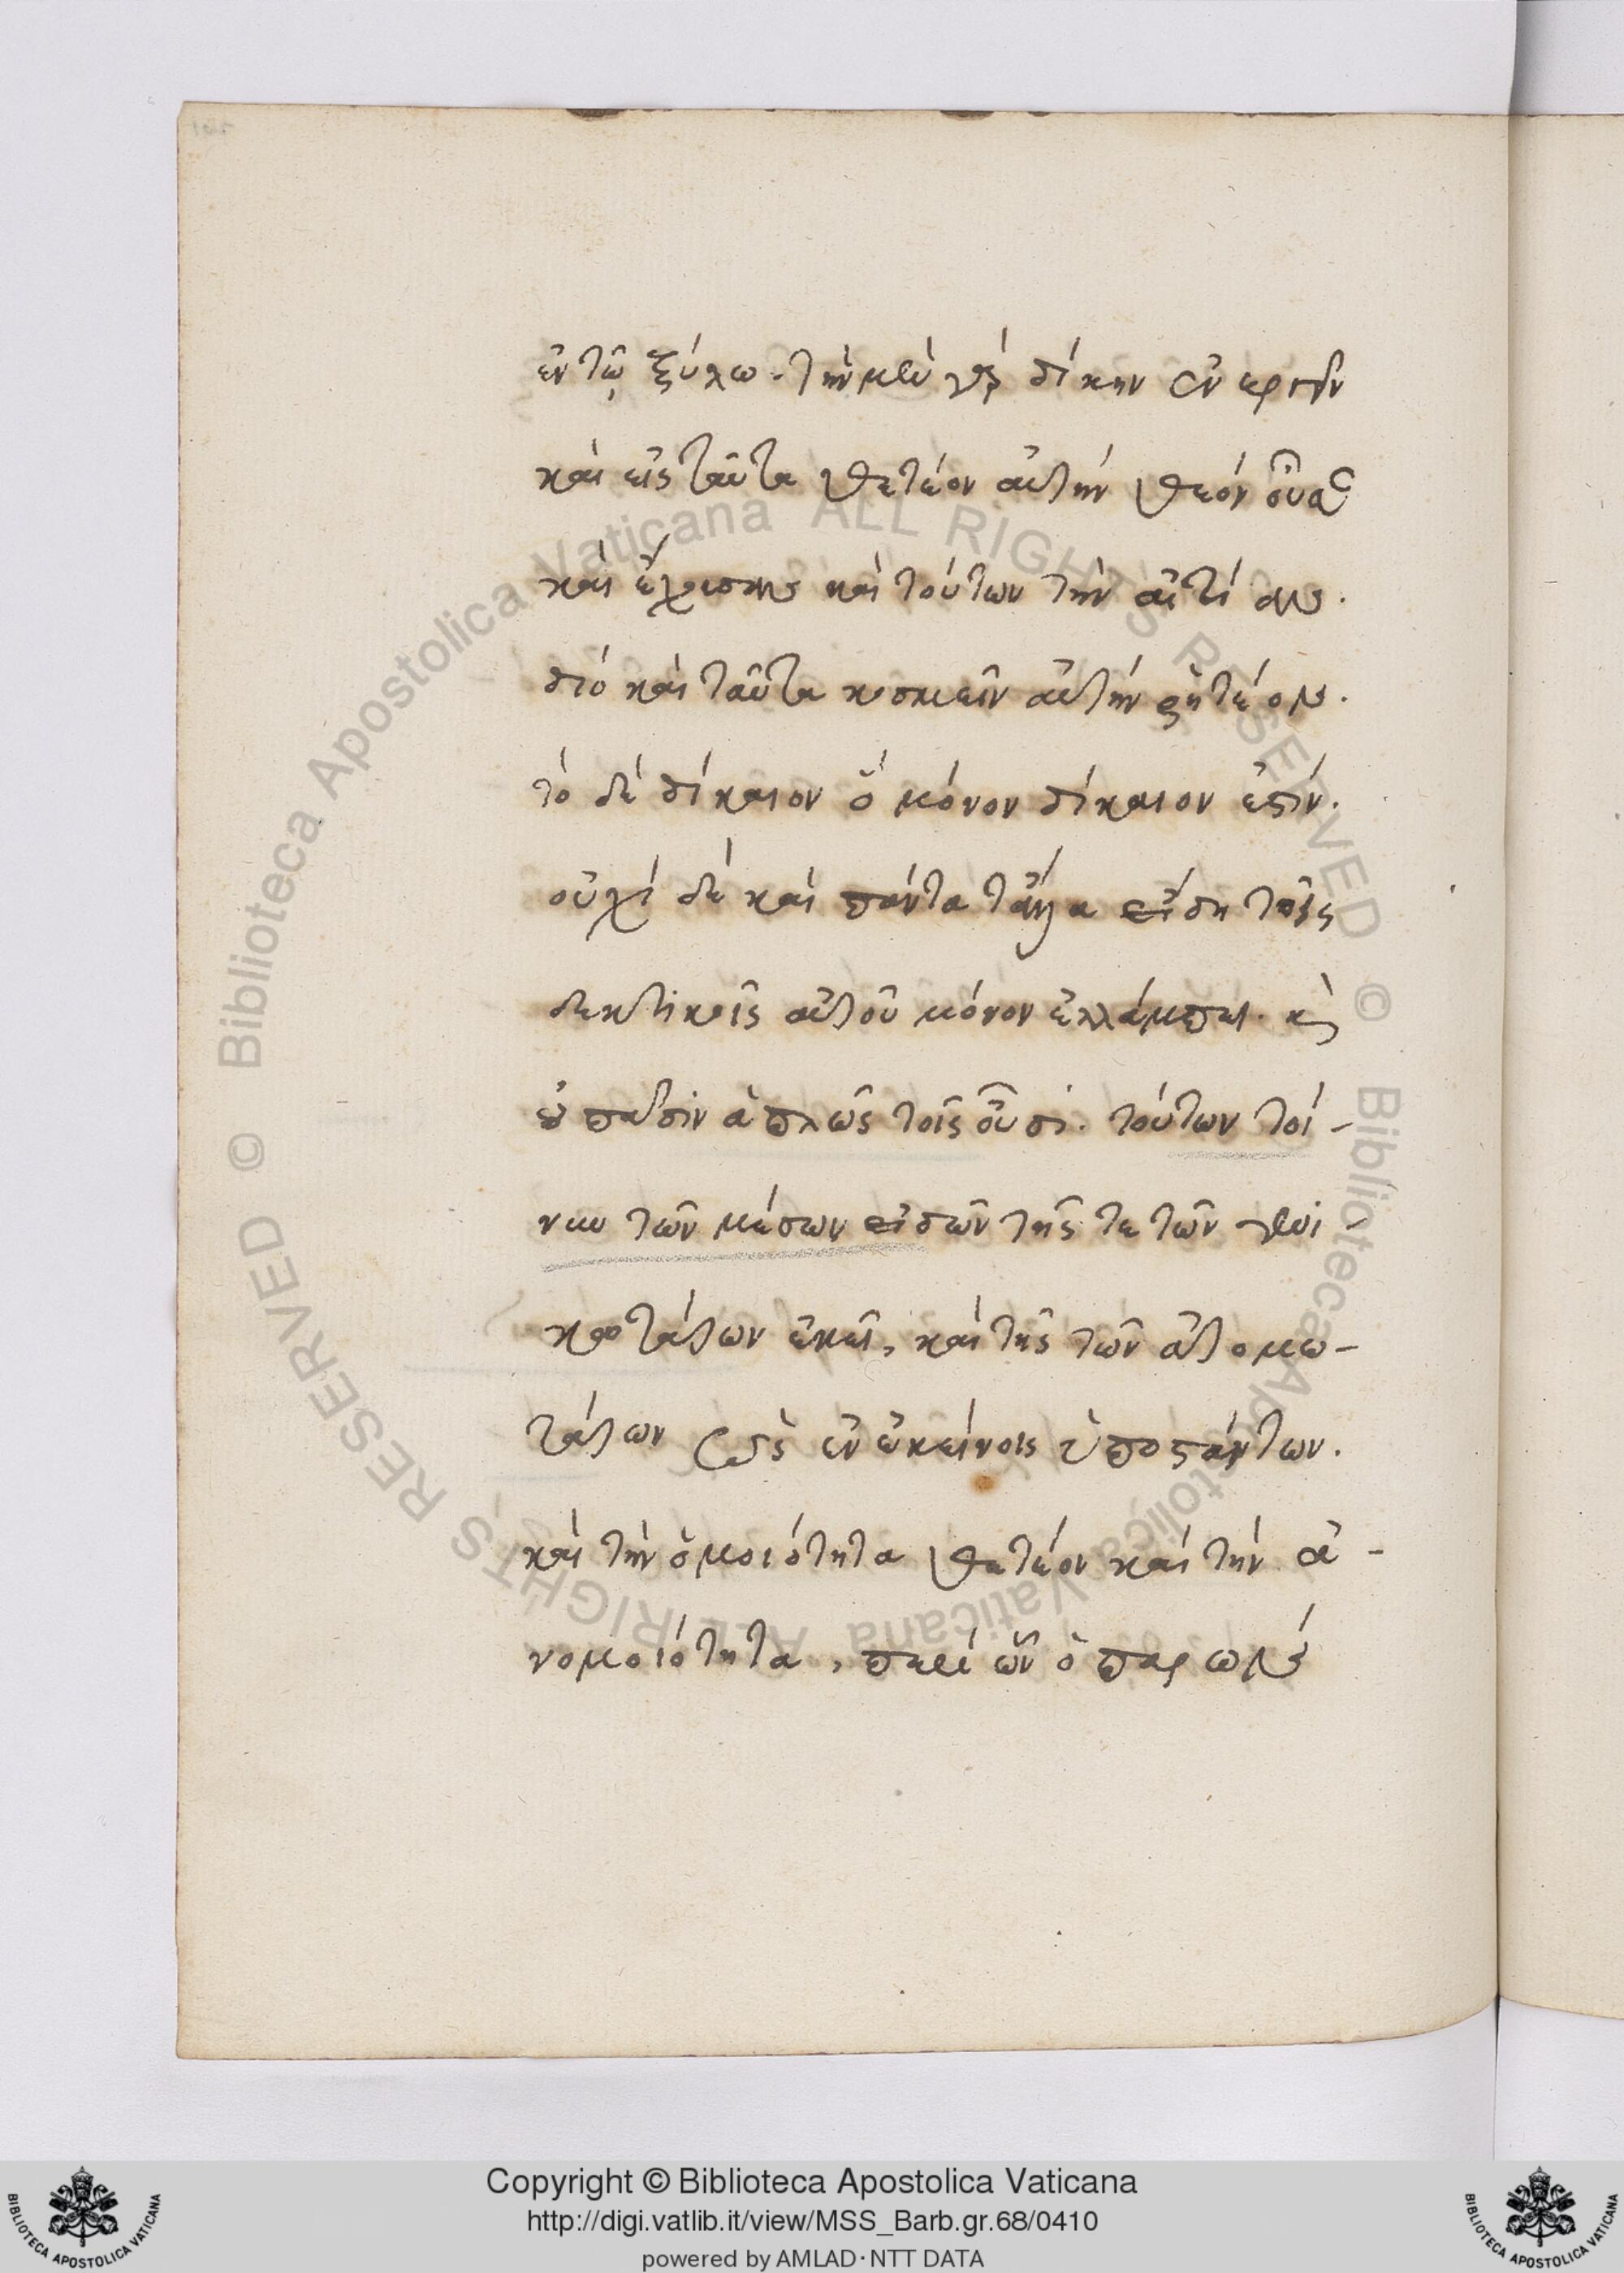 ἐν τῷ ξύλω. τὴν μὲν γὰρ δίκην
καὶ εἰς ταῦτα θετέον αὐτὴν θεὸν οὖσαν
καὶ ἔχουσαν καὶ τούτων τὴν αἰτίαν.
διὸ καὶ ταῦτα κοσμεῖν αὐτὴν ῥητέον.
τὸ δὲ δίκαιον ὃ μόνον δίκαιον ἐστίν.
οὐχὶ δὲ καὶ πάντα τἄλλα εἴδη τοῖς
δεκτικοῖς αὐτοῦ μόνον ἐλλάμπει. καὶ
οὐ πᾶσιν ἁπλῶς τοῖς οὖσι. τούτων τοί-
νυν τῶν μέσων εἰδῶν τῆς τε τῶν γενι-
κωτάτων ἐκεῖ, καὶ τῆς τῶν ἀτομω-
τάτων ὡς ἐν ἐκείνοις ὑποστάντων.
καὶ τὴν ὁμοιότητα θετέον καὶ τὴν ἀ-
νομοιότητα, περὶ ὧν ὁ παρὼν
Copyright © Biblioteca Apostolica Vaticana
http://digi.vatlib.it/view/MSS_Barb.gr.68/0410
powered by AMLAD·NTT DATA
BIBLIOTECA APOSTOLICA VATICANA
BIBLIOTECA APOSTOLICA VATICANA
© Biblioteca Apostolica Vaticana ALL RIGHTS RESERVED
© Biblioteca Apostolica Vaticana ALL RIGHTS RESERVED